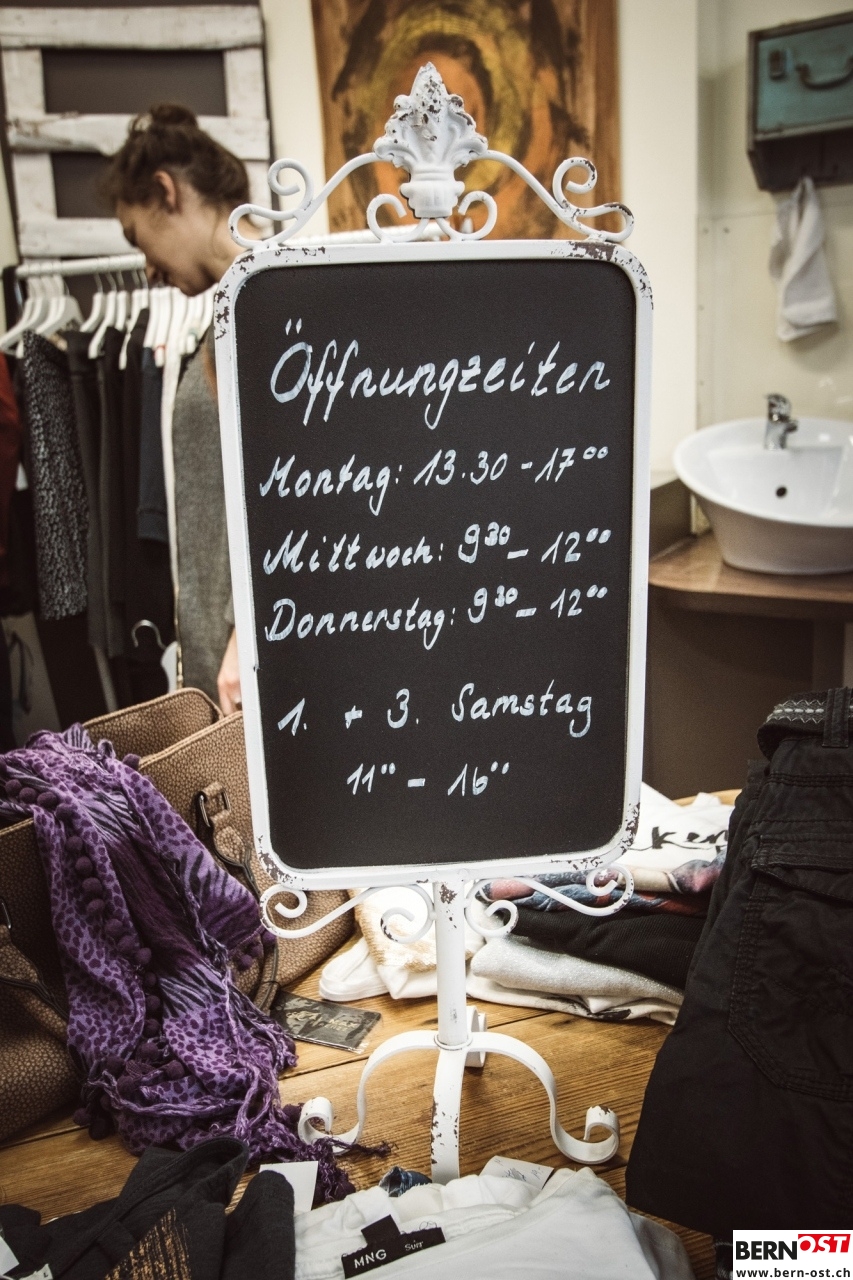 Öffnungzeiten
Montag: 13.30 - 17⁰⁰
Mittwoch: 9³⁰ - 12⁰⁰
Donnerstag: 9³⁰ - 12⁰⁰
1. + 3. Samstag
11⁰⁰ - 16⁰⁰
MNG Suit
BERNOST
www.bern-ost.ch